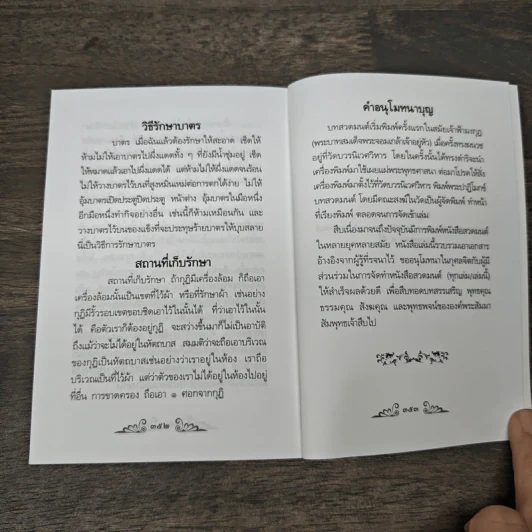 วิธีรักษาบาตร
บาตร เมื่อฉันแล้วต้องรักษาให้สะอาด เช็ดให้
ห้ามไม่ให้เอาบาตรไปผึ่งแดดทั้ง ๆ ที่ยังมีน้ำชุ่มอยู่ เช็ด
ให้หมดแล้วเอาไปผึ่งแดดได้ แต่ห้ามไม่ให้ผึ่งแดดจนร้อน
ไม่ให้วางบาตรไว้บนที่สูงหมิ่นเหม่ต่อการตกได้ง่าย ไม่ให้
อุ้มบาตรเปิดประตูปิดประตู หน้าต่าง อุ้มบาตรในมือหนึ่ง
อีกมือหนึ่งทำกิจอย่างอื่น เช่นนี้ก็ห้ามเหมือนกัน และ
วางบาตรไว้บนของแข็งที่จะประทุษร้ายบาตรให้บุบสลาย
นี่เป็นวิธีการรักษาบาตร
สถานที่เก็บรักษา
สถานที่เก็บรักษา ถ้ากุฏิมีเครื่องล้อม ก็ถือเอา
เครื่องล้อมนั้นเป็นเขตที่ไว้ผ้า หรือที่รักษาผ้า เช่นอย่าง
กุฏิมีรั้วรอบเขตขอบชิดเอาไว้ในนั้นได้ ที่ว่าเอาไว้ในนั้น
ได้ คือตัวเราก็ต้องอยู่กุฏิ จะสว่างขึ้นมาก็ไม่เป็นอาบัติ
ถึงแม้ว่าจะไม่ได้อยู่ในหัตถบาส สมมติว่าจะถือเอาบริเวณ
ของกุฏิเป็นหัตถบาสเช่นอย่างว่าเราอยู่ในห้อง เราถือ
บริเวณเป็นที่ไว้ผ้า แต่ว่าตัวของเราไม่ได้อยู่ในห้องไปอยู่
ที่อื่น การขาดครอง ถือเอา ๑ ศอกจากกุฏิ
๓๕๒
คำอนุโมทนาบุญ
บทสวดมนต์เริ่มพิมพ์ครั้งแรกในสมัยเจ้าฟ้ามงกุฎ
(พระบาทสมเด็จพระจอมเกล้าเจ้าอยู่หัว) เมื่อครั้งทรงผนวช
อยู่ที่วัดบวรนิเวศวิหาร โดยในครั้งนั้นได้ทรงดำริจะนำ
เครื่องพิมพ์มาใช้เผยแผ่พระพุทธศาสนา ต่อมาโปรดให้สั่ง
เครื่องพิมพ์มาตั้งไว้ที่วัดบวรนิเวศวิหาร พิมพ์พระปฏิโมกข์
บทสวดมนต์ โดยมีคณะสงฆ์ในวัดเป็นผู้จัดพิมพ์ ทำหน้า
ที่เรียงพิมพ์ ตลอดจนการจัดเข้าเล่ม
สืบเนื่องมาจนถึงปัจจุบันมีการพิมพ์หนังสือสวดมนต์
ในหลายยุคหลายสมัย หนังสือเล่มนี้รวบรวมเอาเอกสาร
อ้างอิงจากผู้รู้ที่รจนาไว้ ขออนุโมทนาในกุศลจิตกับผู้มี
ส่วนร่วมในการจัดทำหนังสือสวดมนต์ (ทุกเล่ม/เล่มนี้)
ให้สำเร็จผลด้วยดี เพื่อสืบทอดบทสรรเสริญ พุทธคุณ
ธรรมคุณ สังฆคุณ และพุทธพจน์ขององค์พระสัมมา
สัมพุทธเจ้าสืบไป
๓๕๓